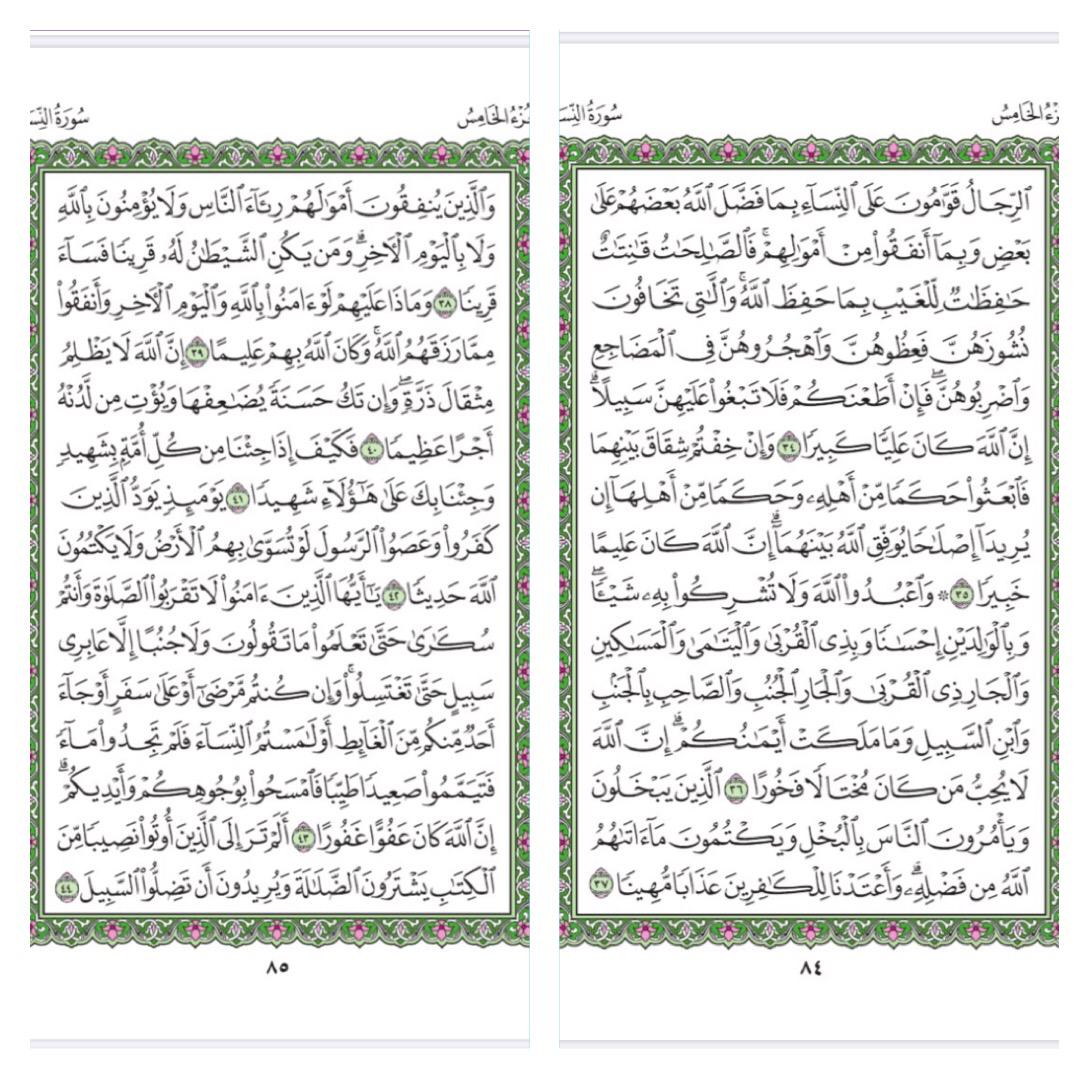 الجُزْءُ الخَامِسُ
سُورَةُ النِّسَ
ٱلرِّجَالُ قَوَّٰمُونَ عَلَى ٱلنِّسَآءِ بِمَا فَضَّلَ ٱللَّهُ بَعْضَهُمْ عَلَىٰ
بَعْضٖ وَبِمَآ أَنفَقُواْ مِنْ أَمْوَٰلِهِمْۚ فَٱلصَّٰلِحَٰتُ قَٰنِتَٰتٌ
حَٰفِظَٰتٞ لِّلْغَيْبِ بِمَا حَفِظَ ٱللَّهُۚ وَٱلَّٰتِي تَخَافُونَ
نُشُوزَهُنَّ فَعِظُوهُنَّ وَٱهْجُرُوهُنَّ فِي ٱلْمَضَاجِعِ
وَٱضْرِبُوهُنَّۖ فَإِنْ أَطَعْنَكُمْ فَلَا تَبْغُواْ عَلَيْهِنَّ سَبِيلًاۗ
إِنَّ ٱللَّهَ كَانَ عَلِيّٗا كَبِيرٗا ٣٤ وَإِنْ خِفْتُمْ شِقَاقَ بَيْنِهِمَا
فَٱبْعَثُواْ حَكَمٗا مِّنْ أَهْلِهِۦ وَحَكَمٗا مِّنْ أَهْلِهَآ إِن
يُرِيدَآ إِصْلَٰحٗا يُوَفِّقِ ٱللَّهُ بَيْنَهُمَآۗ إِنَّ ٱللَّهَ كَانَ عَلِيمًا
خَبِيرٗا ٣٥ ۞ وَٱعْبُدُواْ ٱللَّهَ وَلَا تُشْرِكُواْ بِهِۦ شَيْـٔٗاۖ
وَبِٱلْوَٰلِدَيْنِ إِحْسَٰنٗا وَبِذِي ٱلْقُرْبَىٰ وَٱلْيَتَٰمَىٰ وَٱلْمَسَٰكِينِ
وَٱلْجَارِ ذِي ٱلْقُرْبَىٰ وَٱلْجَارِ ٱلْجُنُبِ وَٱلصَّاحِبِ بِٱلْجَنۢبِ
وَٱبْنِ ٱلسَّبِيلِ وَمَا مَلَكَتْ أَيْمَٰنُكُمْۗ إِنَّ ٱللَّهَ
لَا يُحِبُّ مَن كَانَ مُخْتَالٗا فَخُورًا ٣٦ ٱلَّذِينَ يَبْخَلُونَ
وَيَأْمُرُونَ ٱلنَّاسَ بِٱلْبُخْلِ وَيَكْتُمُونَ مَآ ءَاتَىٰهُمُ
ٱللَّهُ مِن فَضْلِهِۦۗ وَأَعْتَدْنَا لِلْكَٰفِرِينَ عَذَابٗا مُّهِينٗا ٣٧
٨٤
الجُزْءُ الخَامِسُ
سُورَةُ النِّسَ
وَٱلَّذِينَ يُنفِقُونَ أَمْوَٰلَهُمْ رِئَآءَ ٱلنَّاسِ وَلَا يُؤْمِنُونَ بِٱللَّهِ
وَلَا بِٱلْيَوْمِ ٱلْأٓخِرِۗ وَمَن يَكُنِ ٱلشَّيْطَٰنُ لَهُۥ قَرِينٗا فَسَآءَ
قَرِينٗا ٣٨ وَمَاذَا عَلَيْهِمْ لَوْ ءَامَنُواْ بِٱللَّهِ وَٱلْيَوْمِ ٱلْأٓخِرِ وَأَنفَقُواْ
مِمَّا رَزَقَهُمُ ٱللَّهُۚ وَكَانَ ٱللَّهُ بِهِمْ عَلِيمًا ٣٩ إِنَّ ٱللَّهَ لَا يَظْلِمُ
مِثْقَالَ ذَرَّةٖۖ وَإِن تَكُ حَسَنَةٗ يُضَٰعِفْهَا وَيُؤْتِ مِن لَّدُنْهُ
أَجْرًا عَظِيمٗا ٤٠ فَكَيْفَ إِذَا جِئْنَا مِن كُلِّ أُمَّةِۭ بِشَهِيدٖ
وَجِئْنَا بِكَ عَلَىٰ هَٰٓؤُلَآءِ شَهِيدٗا ٤١ يَوْمَئِذٖ يَوَدُّ ٱلَّذِينَ
كَفَرُواْ وَعَصَوُاْ ٱلرَّسُولَ لَوْ تُسَوَّىٰ بِهِمُ ٱلْأَرْضُ وَلَا يَكْتُمُونَ
ٱللَّهَ حَدِيثٗا ٤٢ يَٰٓأَيُّهَا ٱلَّذِينَ ءَامَنُواْ لَا تَقْرَبُواْ ٱلصَّلَوٰةَ وَأَنتُمْ
سُكَٰرَىٰ حَتَّىٰ تَعْلَمُواْ مَا تَقُولُونَ وَلَا جُنُبًا إِلَّا عَابِرِي
سَبِيلٍ حَتَّىٰ تَغْتَسِلُواْۚ وَإِن كُنتُم مَّرْضَىٰٓ أَوْ عَلَىٰ سَفَرٍ أَوْ جَآءَ
أَحَدٞ مِّنكُم مِّنَ ٱلْغَآئِطِ أَوْ لَٰمَسْتُمُ ٱلنِّسَآءَ فَلَمْ تَجِدُواْ مَآءٗ
فَتَيَمَّمُواْ صَعِيدٗا طَيِّبٗا فَٱمْسَحُواْ بِوُجُوهِكُمْ وَأَيْدِيكُمْۗ
إِنَّ ٱللَّهَ كَانَ عَفُوًّا غَفُورًا ٤٣ أَلَمْ تَرَ إِلَى ٱلَّذِينَ أُوتُواْ نَصِيبٗا مِّنَ
ٱلْكِتَٰبِ يَشْتَرُونَ ٱلضَّلَٰلَةَ وَيُرِيدُونَ أَن تَضِلُّواْ ٱلسَّبِيلَ ٤٤
٨٥